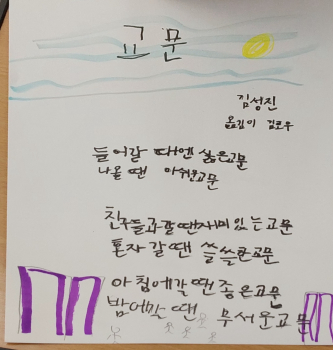 교문
김성진
옮김이 김로우
들어갈 때엔 싫은교문
나올 땐 아쉬운교문
친구들과갈땐재미있는교문
혼자갈땐 쓸쓸한교문
아침에갈땐좋은교문
밤에갈땐 무서운교문